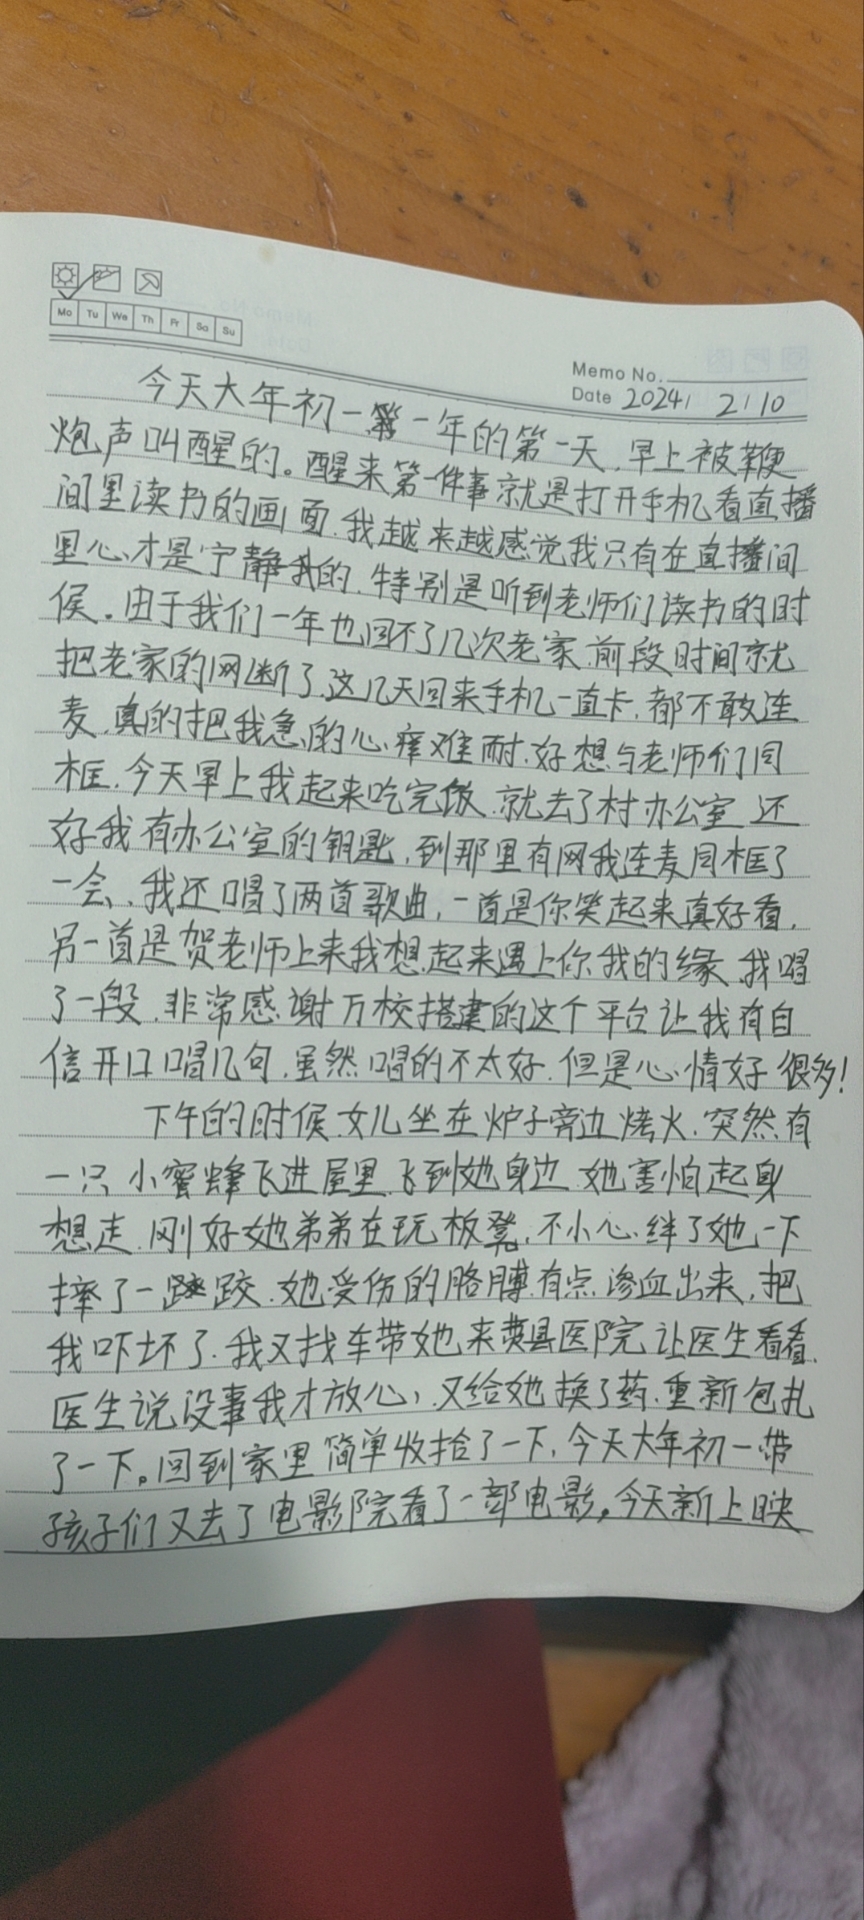 Mo Tu We Th Fr Sa Su
Memo No.
Date 2024 / 2 / 10
今天大年初一 一年的第一天，早上被鞭
炮声叫醒的。醒来第一件事就是打开手机看直播
间里读书的画面，我越来越感觉我只有在直播间
里心才是宁静的，特别是听到老师们读书的时
候。由于我们一年也回不了几次老家，前段时间就
把老家的网断了，这几天回来手机一直卡，都不敢连
麦，真的把我急的心痒难耐，好想与老师们同
框，今天早上我起来吃完饭，就去了村办公室 还
好我有办公室的钥匙，到那里有网我连麦同框了
一会，我还唱了两首歌曲，一首是你笑起来真好看，
另一首是贺老师上来我想起来遇上你我的缘，我唱
了一段，非常感谢万校搭建的这个平台让我有自
信开口唱几句，虽然唱的不太好，但是心情好很多！
下午的时候，女儿坐在炉子旁边烤火，突然有
一只小蜜蜂飞进屋里，飞到她身边，她害怕起身
想走，刚好她弟弟在玩板凳，不小心绊了她一下
摔了一跤，她受伤的胳膊有点渗血出来，把
我吓坏了，我又找车带她来 县医院让医生看看，
医生说没事我才放心，又给她换了药，重新包扎
了一下。回到家里简单收拾了一下，今天大年初一带
孩子们又去了电影院看了一部电影。今天新上映